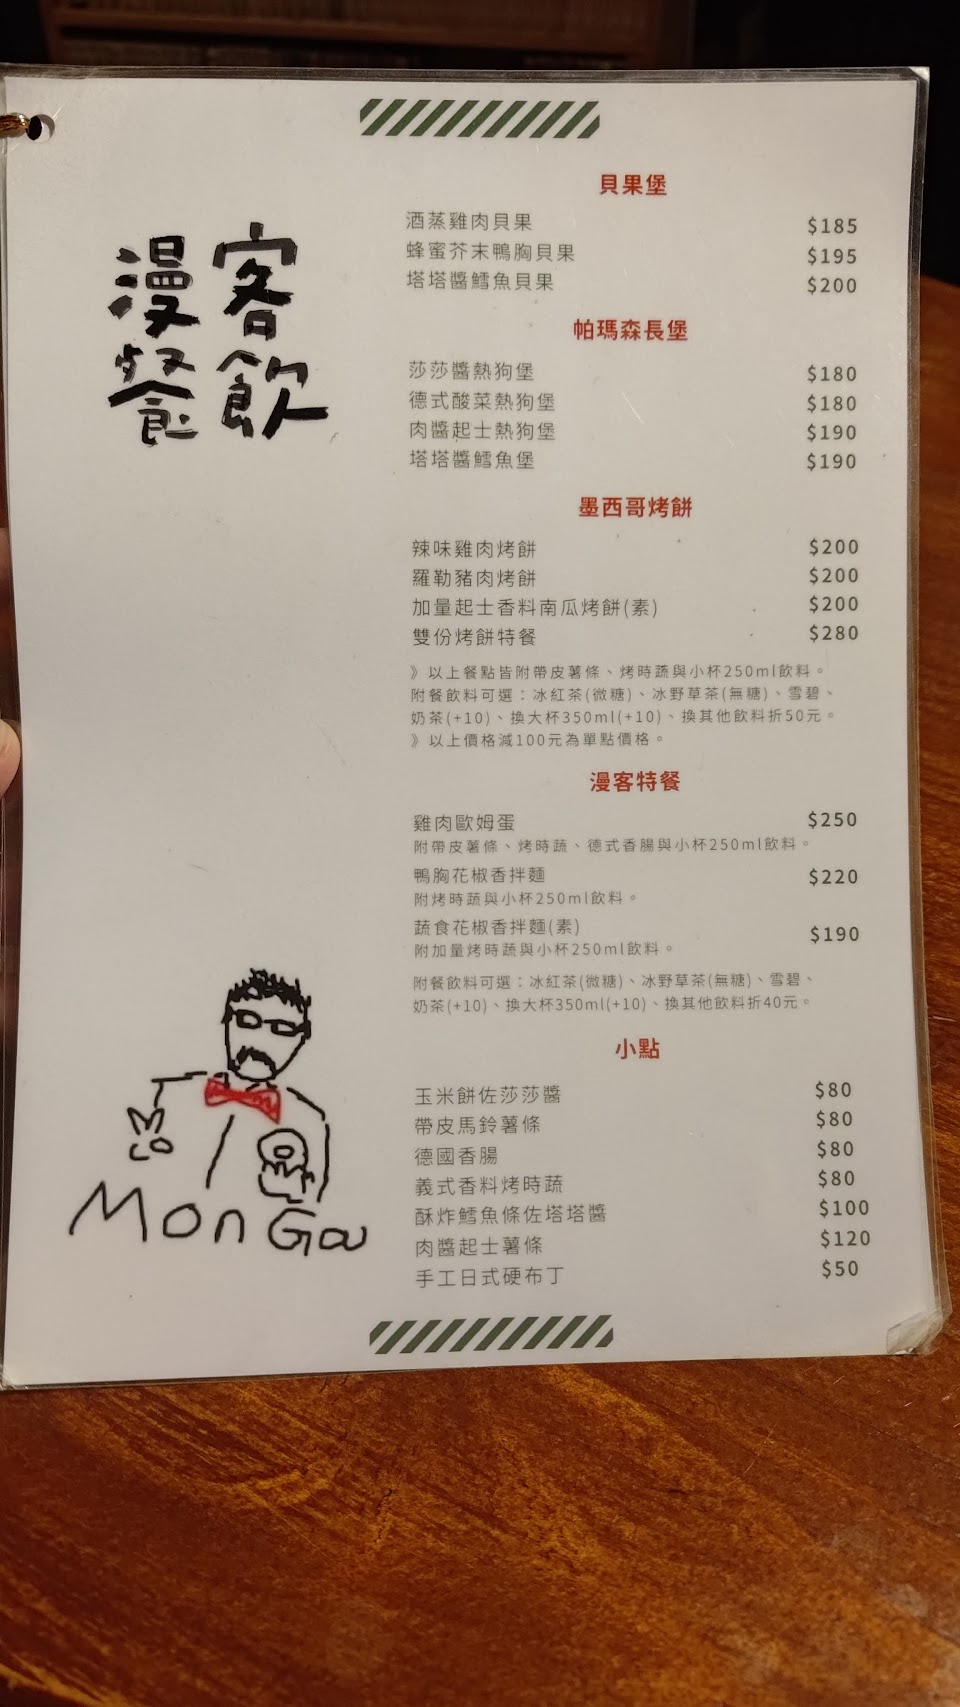 漫客
餐飲
貝果堡
酒蒸雞肉貝果 $185
蜂蜜芥末鴨胸貝果 $195
塔塔醬鱈魚貝果 $200
帕瑪森長堡
莎莎醬熱狗堡 $180
德式酸菜熱狗堡 $180
肉醬起士熱狗堡 $190
塔塔醬鱈魚堡 $190
墨西哥烤餅
辣味雞肉烤餅 $200
羅勒豬肉烤餅 $200
加量起士香料南瓜烤餅(素) $200
雙份烤餅特餐 $280
》以上餐點皆附帶皮薯條、烤時蔬與小杯250ml飲料。
附餐飲料可選：冰紅茶(微糖)、冰野草茶(無糖)、雪碧、
奶茶(+10)、換大杯350ml(+10)、換其他飲料折50元。
》以上價格減100元為單點價格。
漫客特餐
雞肉歐姆蛋 $250
附帶皮薯條、烤時蔬、德式香腸與小杯250ml飲料。
鴨胸花椒香拌麵 $220
附烤時蔬與小杯250ml飲料。
蔬食花椒香拌麵(素) $190
附加量烤時蔬與小杯250ml飲料。
附餐飲料可選：冰紅茶(微糖)、冰野草茶(無糖)、雪碧、
奶茶(+10)、換大杯350ml(+10)、換其他飲料折40元。
小點
玉米餅佐莎莎醬 $80
帶皮馬鈴薯條 $80
德國香腸 $80
義式香料烤時蔬 $80
酥炸鱈魚條佐塔塔醬 $100
肉醬起士薯條 $120
手工日式硬布丁 $50
Mon Ga